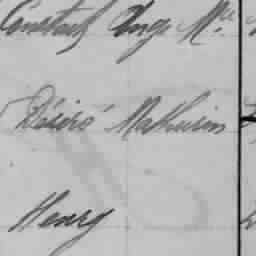 Constant Ange Mie
Désiré Mathurin
Henry